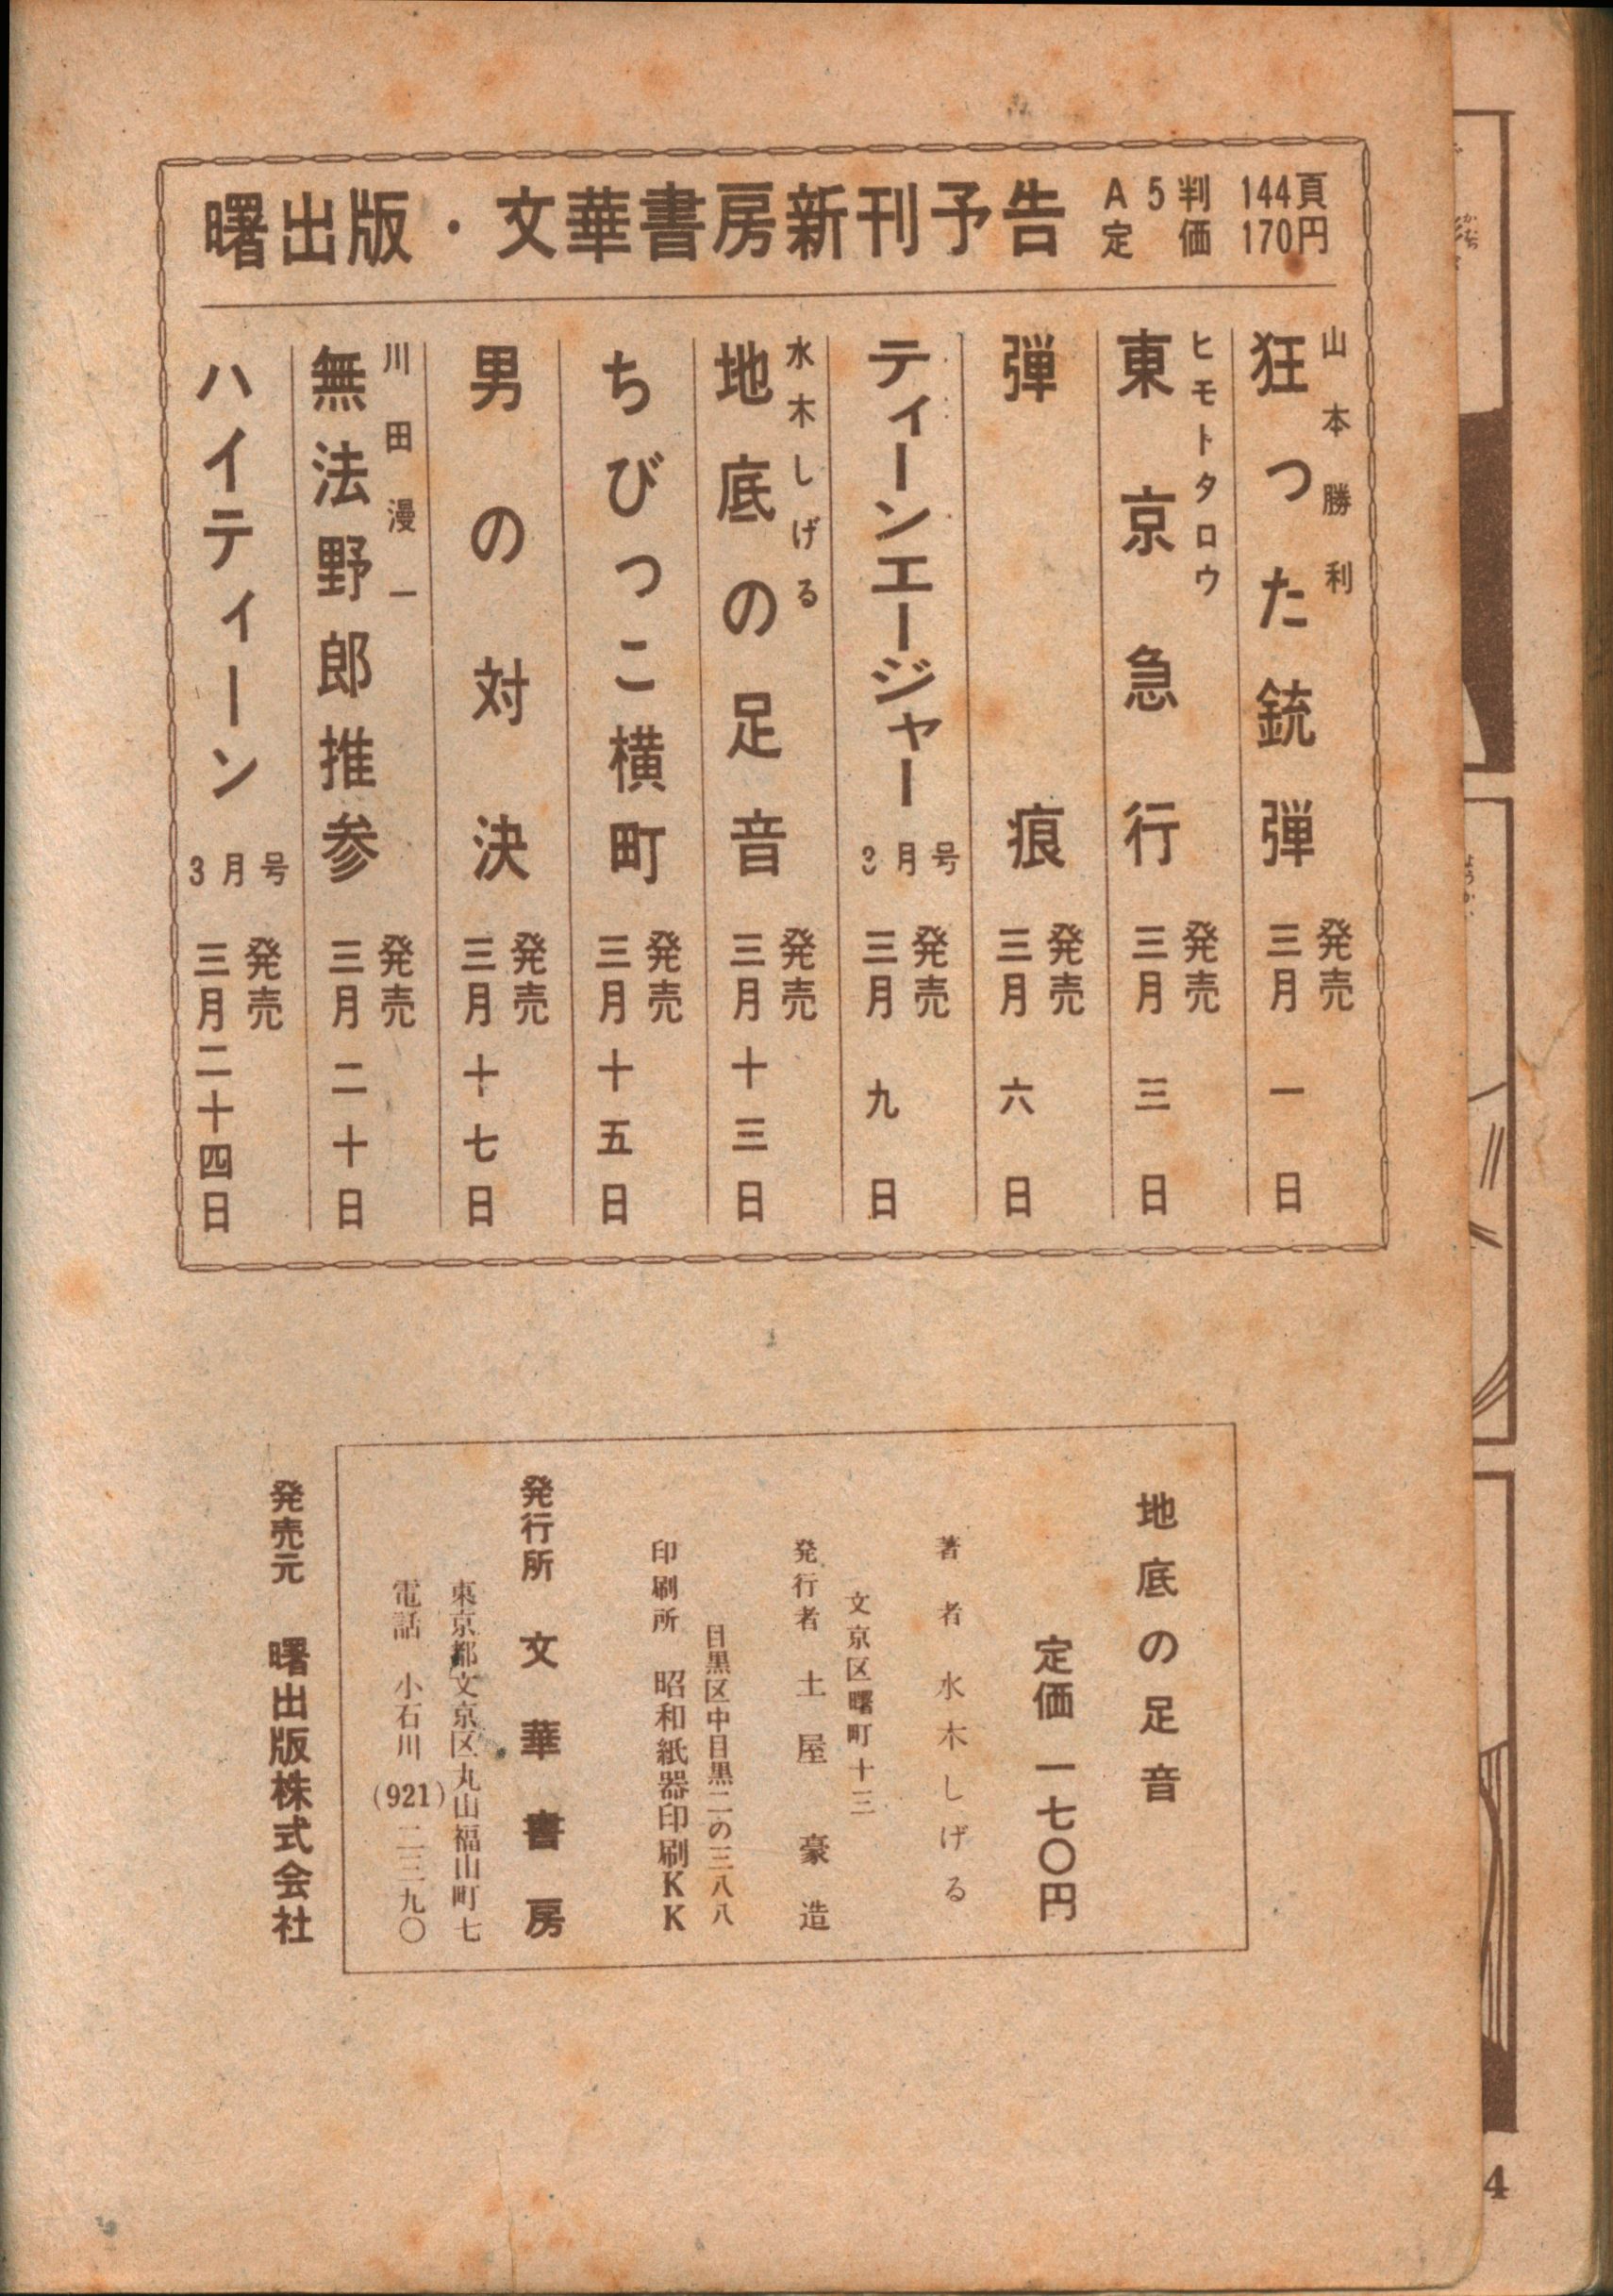 曙出版・文華書房新刊予告
A5判 144頁
定価 170円
山本勝利
狂つた銃弾
発売
三月一日
ヒモトタロウ
東京急行
発売
三月三日
弾痕
発売
三月六日
ティーンエージャー 3月号
発売
三月九日
水木しげる
地底の足音
発売
三月十三日
ちびっこ横町
発売
三月十五日
男の対決
発売
三月十七日
川田漫一
無法野郎推参
発売
三月二十日
ハイティーン 3月号
発売
三月二十四日
地底の足音
定価 一七〇円
著者 水木しげる
文京区曙町十三
発行者 土屋豪造
目黒区中目黒二の三八八
印刷所 昭和紙器印刷KK
発行所 文華書房
東京都文京区丸山福山町七
電話 小石川(921)二三九〇
発売元 曙出版株式会社
4